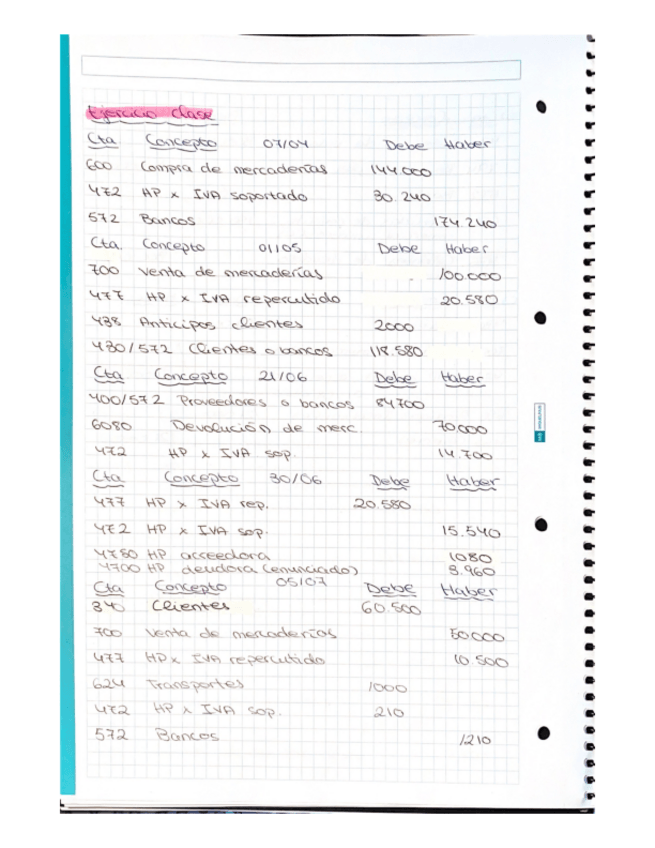 Ejercicio clase
Cta Concepto 07/04 Debe Haber
600 Compra de mercaderías 144000
472 HP x IVA soportado 30.240
572 Bancos 174.240
Cta. Concepto 01/05 Debe Haber
700 Venta de mercaderías 100000
477 HP x IVA repercutido 20.580
438 Anticipos clientes 2000
430/572 Clientes o bancos 118.580
Cta Concepto 21/06 Debe Haber
400/572 Proveedores o bancos 84700
6080 Devolución de merc. 70000
472 HP x IVA sop. 14.700
Cta Concepto 30/06 Debe Haber
477 HP x IVA rep. 20.580
472 HP x IVA sop. 15.540
4750 HP acceedora 1080
4700 HP deudora (enunciado) 3.960
Cta Concepto 05/07 Debe Haber
340 Clientes 60.500
700 Venta de mercaderías 50000
477 HP x IVA repercutido 10.500
624 Transportes 1000
472 HP x IVA sop. 210
572 Bancos 1210